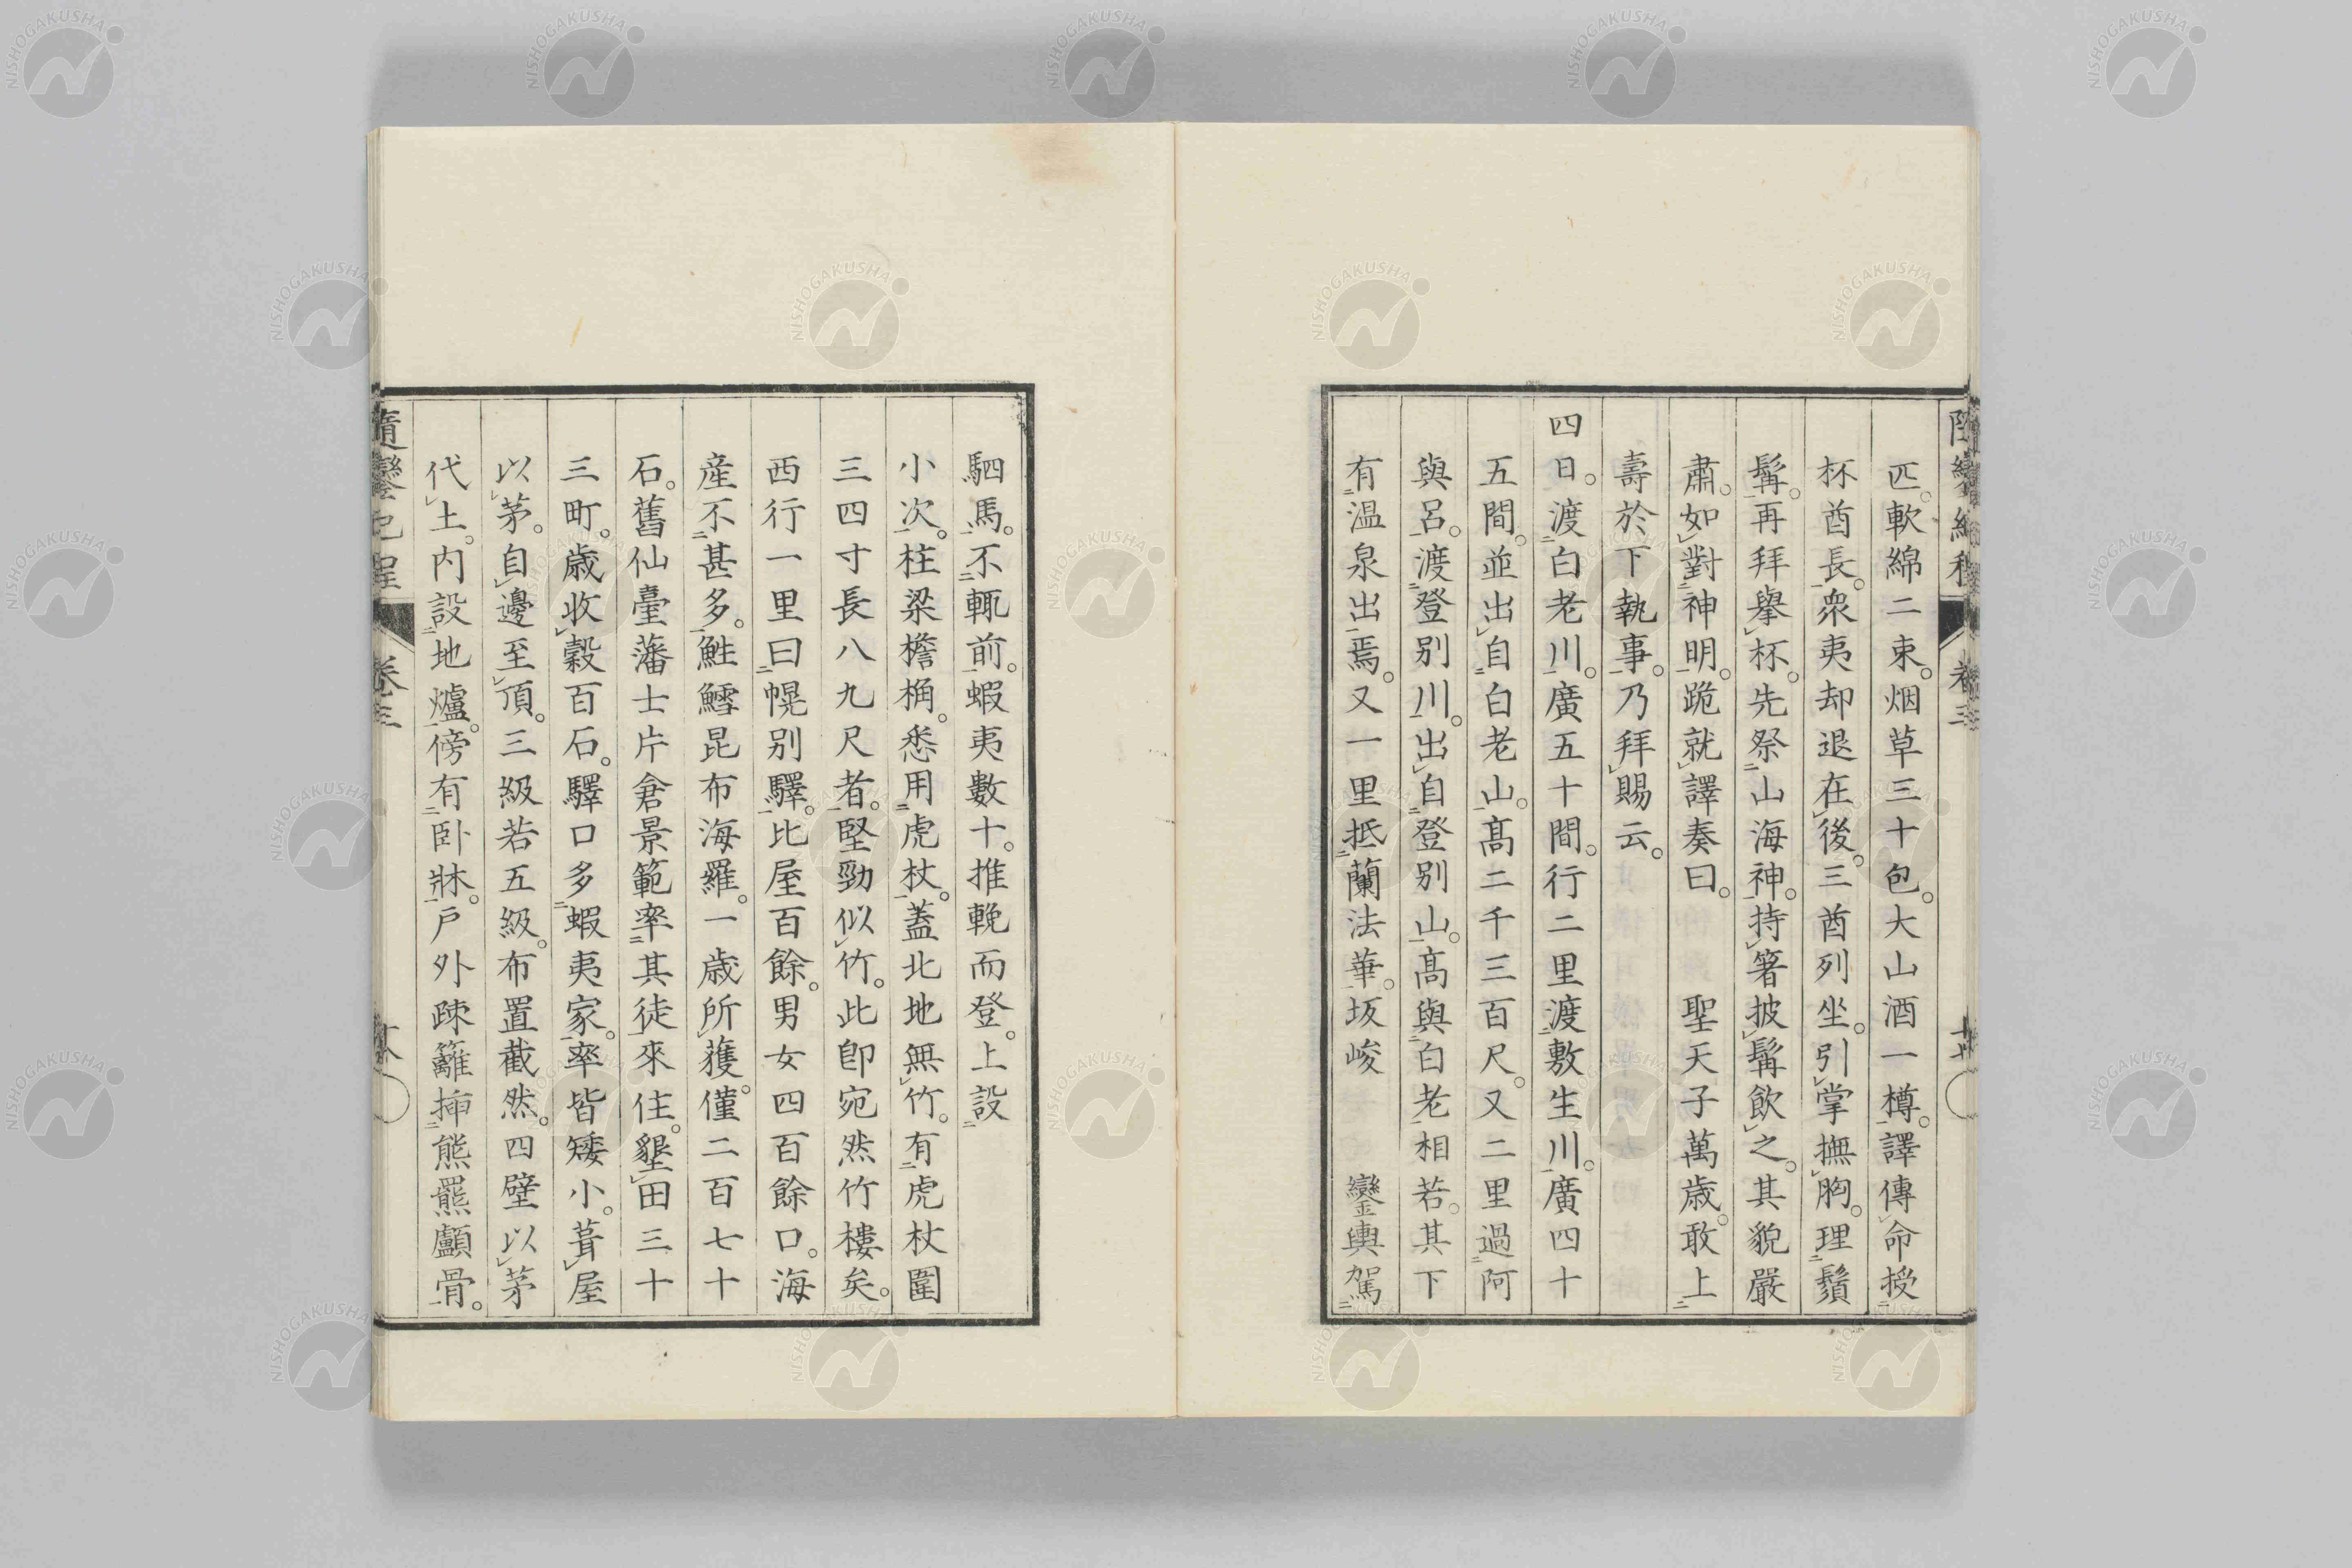 匹。軟綿二束。烟草三十包。大山酒一樽。譯傳命授
杯酋長。衆夷却退在後。三酋列坐。引掌撫胸。理鬚
髯。再拜擧杯。先祭山海神。持箸披髯飮之。其貌嚴
肅。如對神明。跪就譯奏曰。　聖天子萬歲。敢上
壽於下執事。乃拜賜云。
四日。渡白老川。廣五十間。行二里渡敷生川。廣四十
五間。並出自白老山。高二千三百尺。又二里過阿
與呂。渡登別川。出自登別山。高與白老相若。其下
有温泉出焉。又一里抵蘭法華。坂峻　鑾輿駕
駟馬。不輒前。蝦夷數十。推輓而登。上設
小次。柱梁檐桷。悉用虎杖。蓋北地無竹。有虎杖圍
三四寸長八九尺者。堅勁似竹。此卽宛然竹樓矣。
西行一里曰幌別驛。比屋百餘。男女四百餘口。海
産不甚多。鮏鱈昆布海羅。一歲所獲。僅二百七十
石。舊仙臺藩士片倉景範率其徒來住。墾田三十
三町。歲收穀百石。驛口多蝦夷家。率皆矮小。葺屋
以茅。自邊至頂。三級若五級。布置截然。四壁以茅
代土。内設地爐。傍有卧牀。戶外疎籬挿熊羆顱骨。
隨鑾紀程
卷三
NISHOGAKUSHA